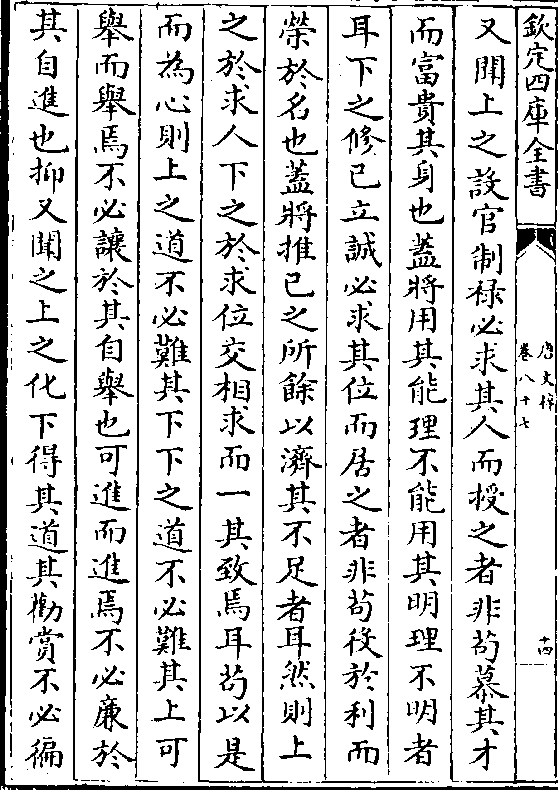 欽定四庫全書
唐文粹
卷八十七
十四
又聞上之設官制祿必求其人而授之者非茍慕其才
而富貴其身也蓋將用其能理不能用其明理不明者
耳下之修己立誠必求其位而居之者非茍役於利而
榮於名也蓋將推己之所餘以濟其不足者耳然則上
之於求人下之於求位交相求而一其致焉耳茍以是
而為心則上之道不必難其下下之道不必難其上可
舉而舉焉不必讓於其自舉也可進而進焉不必廉於
其自進也抑又聞之上之化下得其道其勸賞不必徧